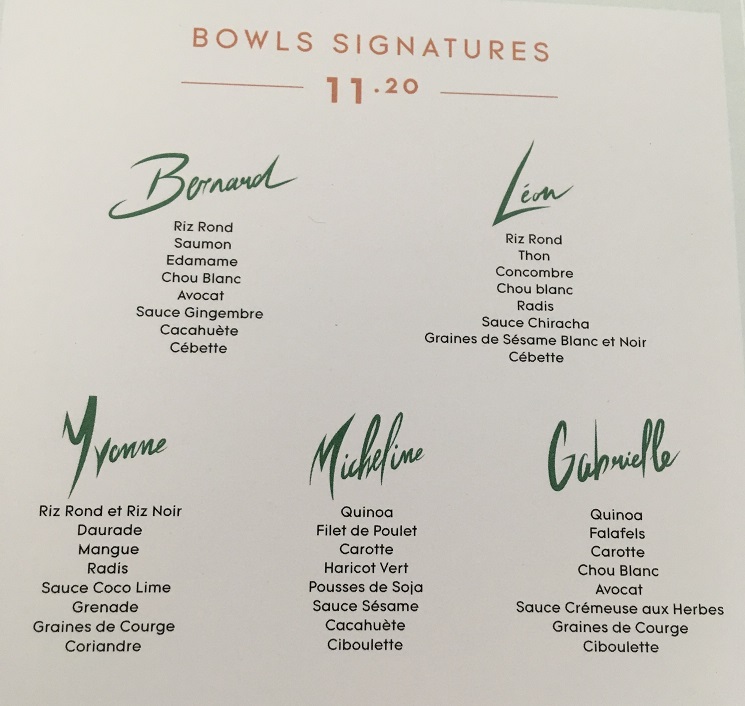 BOWLS SIGNATURES
11.20
Bernard
Riz Rond
Saumon
Edamame
Chou Blanc
Avocat
Sauce Gingembre
Cacahuète
Cébette
Léon
Riz Rond
Thon
Concombre
Chou blanc
Radis
Sauce Chiracha
Graines de Sésame Blanc et Noir
Cébette
Yvonne
Riz Rond et Riz Noir
Daurade
Mangue
Radis
Sauce Coco Lime
Grenade
Graines de Courge
Coriandre
Micheline
Quinoa
Filet de Poulet
Carotte
Haricot Vert
Pousses de Soja
Sauce Sésame
Cacahuète
Ciboulette
Gabrielle
Quinoa
Falafels
Carotte
Chou Blanc
Avocat
Sauce Crémeuse aux Herbes
Graines de Courge
Ciboulette